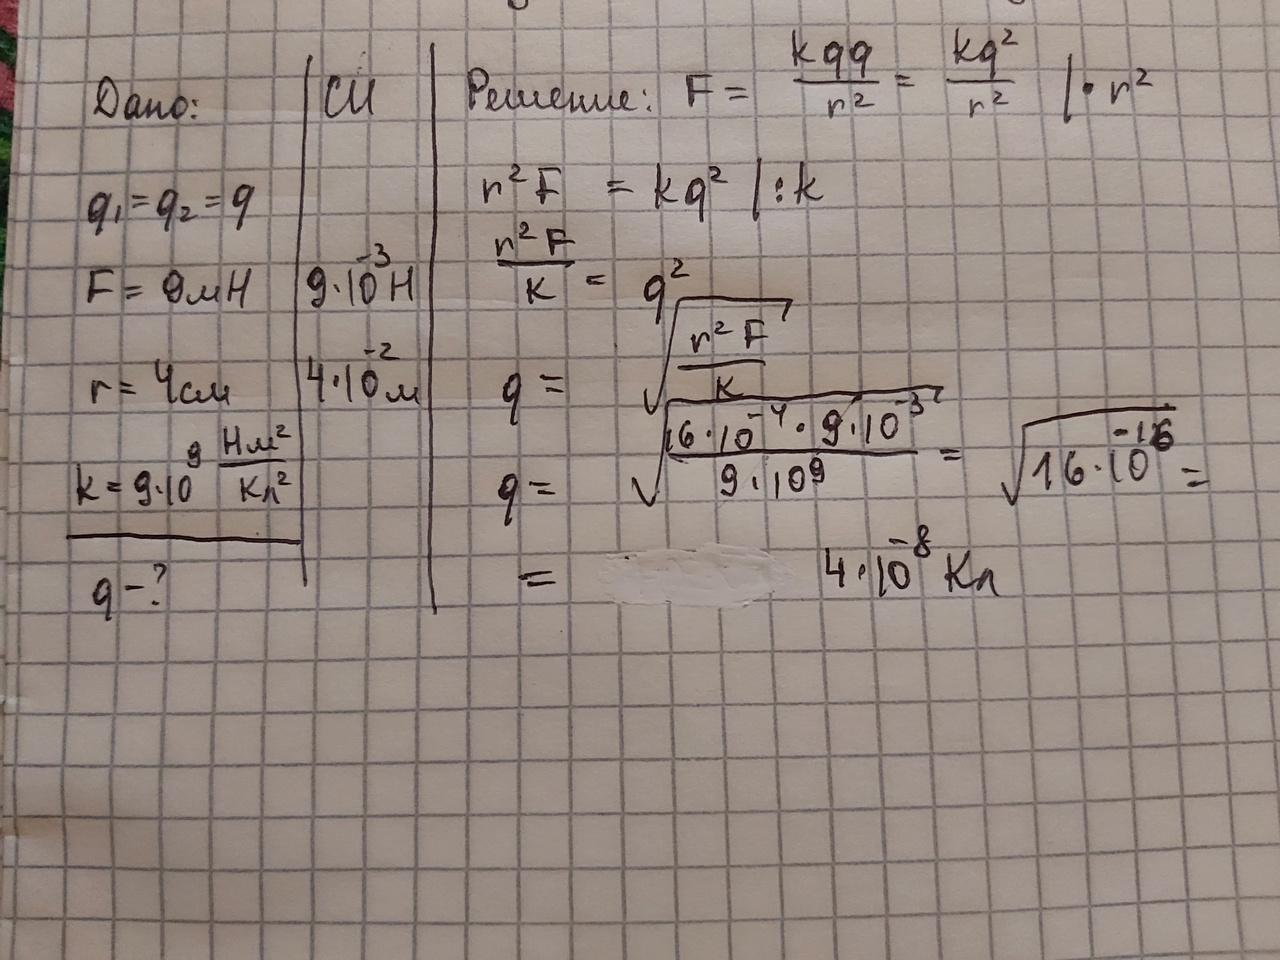 Дано:
q₁ = q₂ = q
F = 9мН
r = 4см
k = 9·10⁹ Нм²/Кл²
q - ?
СИ
9·10⁻³ Н
4·10⁻² м
Решение: F = kqq/r² = kq²/r² |· r²
r²F = kq² |: k
r²F/k = q²
q = √(r²F/k)
q = √(16·10⁻⁴ · 9·10⁻³/9·10⁹) = √(16·10⁻¹⁶) =
= 4·10⁻⁸ Кл